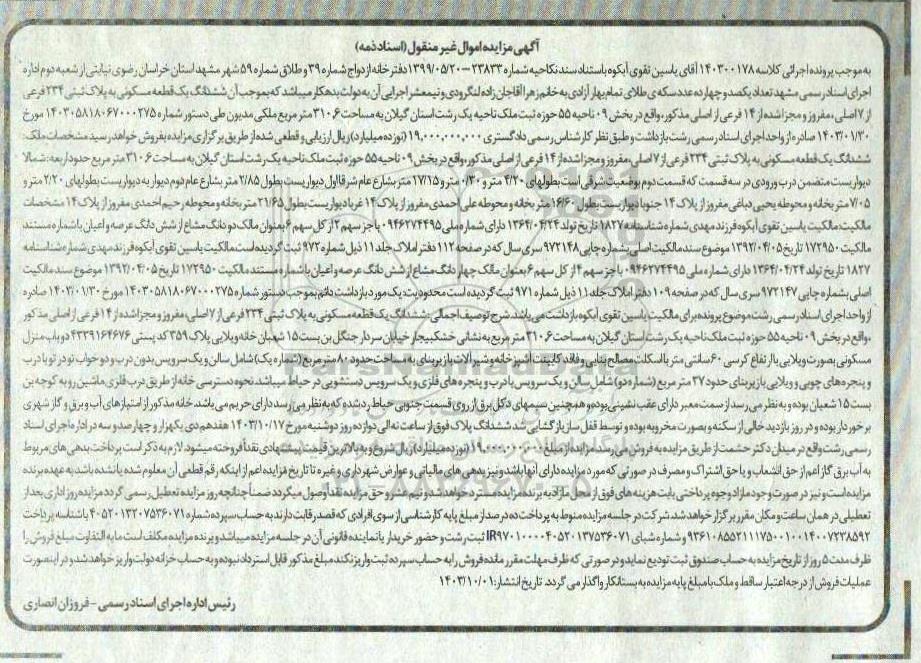 آگهی مزایده اموال غیر منقول (اسناد ذمه)
به موجب پرونده اجرائی کلاسه ۱۴۰۳۰۰۱۷۸ آقای یاسین تقوی آبکوه باستناد سند نکاحیه شماره ۲۳۸۳۳-۱۳۹۹/۰۵/۲۰ دفترخانه ازدواج شماره ۳۹ و طلاق شماره ۵۹ شهر مشهد استان خراسان رضوی نیابتی از شعبه دوم اداره
اجرای اسناد رسمی مشهد تعداد یکصد و چهارده عدد سکه ی طلای تمام بهار آزادی به خانم زهرا آقاجان زاده لنگرودی و نیم عشر اجرایی آن به دولت بدهکار میباشد که بموجب آن ششدانگ یک قطعه مسکونی به پلاک ثبتی ۲۳۴ فرعی
از ۷ اصلی، مفروز و مجزا شده از ۱۴ فرعی از اصلی مذکور، واقع در بخش ۰۹ ناحیه ۵۵ حوزه ثبت ملک ناحیه یک رشت استان گیلان به مساحت ۳۱۰.۶ متر مربع ملکی مدیون طی دستور شماره ۱۴۰۳۰۵۸۱۸۰۶۷۰۰۰۲۷۵ مورخ
۱۴۰۳/۰۱/۳۰ صادره از واحد اجرای اسناد رسمی رشت بازداشت و طبق نظر کارشناس رسمی دادگستری ۱۹,۰۰۰,۰۰۰,۰۰۰ (نوزده میلیارد) ریال ارزیابی و قطعی شده از طریق برگزاری مزایده بفروش خواهد رسید مشخصات ملک:
ششدانگ یک قطعه مسکونی به پلاک ثبتی ۲۳۴ فرعی از ۷ اصلی، مفروز و مجزا شده از ۱۴ فرعی از اصلی مذکور، واقع در بخش ۰۹ ناحیه ۵۵ حوزه ثبت ملک ناحیه یک رشت استان گیلان به مساحت ۳۱۰.۶ متر مربع حدود اربعه: شمالا
دیواریست متضمن درب ورودی در سه قسمت که قسمت دوم بوضعیت شرقی است بطولهای ۴/۲۰ متر و ۰/۳۰ متر و ۱۷/۱۵ متر بشارع عام شرقا اول دیواریست بطول ۲/۸۵ متر بشارع عام دوم دیوار به دیواریست بطولهای ۲/۲۰ متر و
۷/۰۵ متر بخانه و محوطه یحیی دباغی مفروز از پلاک ۱۴ جنوبا دیواریست بطول ۱۶/۶۰ متر بخانه و محوطه علی احمدی مفروز از پلاک ۱۴ غربا دیواریست بطول ۲۱/۶۵ متر بخانه و محوطه رحیم احمدی مفروز از پلاک ۱۴ مشخصات
مالکیت: مالکیت یاسین تقوی آبکوه فرزند مهدی شماره شناسنامه ۱۸۲۷ تاریخ تولد ۱۳۶۴/۰۴/۲۴ دارای شماره ملی ۰۹۴۶۲۷۴۴۹۵ با جز سهم ۲ از کل سهم ۶ بعنوان مالک دو دانگ مشاع از شش دانگ عرصه و اعیان با شماره مستند
مالکیت ۱۷۲۹۵۰ تاریخ ۱۳۹۲/۰۴/۰۵ موضوع سند مالکیت اصلی بشماره چاپی ۹۷۲۱۴۸ سری سال که در صفحه ۱۱۲ دفتر املاک جلد ۱۱ ذیل شماره ۹۷۲ ثبت گردیده است مالکیت یاسین تقوی آبکوه فرزند مهدی شماره شناسنامه
۱۸۲۷ تاریخ تولد ۱۳۶۴/۰۴/۲۴ دارای شماره ملی ۰۹۴۶۲۷۴۴۹۵ با جز سهم ۴ از کل سهم ۶ بعنوان مالک چهار دانگ مشاع از شش دانگ عرصه و اعیان با شماره مستند مالکیت ۱۷۲۹۵۰ تاریخ ۱۳۹۲/۰۴/۰۵ موضوع سند مالکیت
اصلی بشماره چاپی ۹۷۲۱۴۷ سری سال که در صفحه ۱۰۹ دفتر املاک جلد ۱۱ ذیل شماره ۹۷۱ ثبت گردیده است محدودیت: یک مورد بازداشت دائم بموجب دستور شماره ۱۴۰۳۰۵۸۱۸۰۶۷۰۰۰۲۷۵ مورخ ۱۴۰۳/۰۱/۳۰ صادره
از واحد اجرای اسناد رسمی رشت موضوع پرونده برای مالکیت یاسین تقوی آبکوه بازداشت می باشد. شرح توصیف اجمالی: ششدانگ یک قطعه مسکونی به پلاک ثبتی ۲۳۴ فرعی از ۷ اصلی، مفروز و مجزا شده از ۱۴ فرعی از اصلی مذکور
، واقع در بخش ۰۹ ناحیه ۵۵ حوزه ثبت ملک ناحیه یک رشت استان گیلان به مساحت ۳۱۰.۶ متر مربع به نشانی خشکبیجار خیابان سردار جنگل بن بست ۱۵ شعبان خانه ویلایی پلاک ۳۵۹ کد پستی ۴۳۳۹۱۶۴۶۷۶ دو باب منزل
مسکونی بصورت ویلایی با ارتفاع کرسی ۶۰ سانتی متر با اسکلت مصالح بنایی و فاقد کابینت آشپزخانه و شیرآلات با زیربنای به مساحت حدود ۸۰ متر مربع (شماره یک) شامل سالن و یک سرویس بدون درب و دو خواب تو در تو با درب
و پنجره های چوبی و ویلایی با زیربنای حدود ۲۷ متر مربع (شماره دو) شامل سالن و یک سرویس با درب و پنجره های فلزی و یک سرویس دستشویی در حیاط میباشد. نحوه دسترسی خانه از طریق درب فلزی ماشین رو به کوچه بن
بست ۱۵ شعبان بوده و به نظر می رسد از سمت معبر دارای عقب نشینی بوده و همچنین سیمهای دکل برق از روی قسمت جنوبی حیاط رد شده و که به نظر می رسد دارای حریم می باشد. خانه مذکور از امتیازهای آب و برق و گاز شهری
برخوردار بوده و در روز بازدید خالی از سکنه و بصورت مخروبه بوده و توسط قفل ساز بازگشایی شد ششدانگ پلاک فوق از ساعت نه الی دوازده روز دوشنبه مورخ ۱۴۰۳/۱۰/۱۷ هفدهم دی یکهزار و چهارصد و سه در اداره اجرای اسناد
رسمی رشت واقع در میدان دکتر حشمت از طریق مزایده به فروش می رسد مزایده از مبلغ ۱۹,۰۰۰,۰۰۰,۰۰۰ (نوزده میلیارد) ریال شروع و به بالاترین قیمت پیشنهادی نقدا فروخته میشود لازم به ذکر است پرداخت بدهی های مربوط
به آب برق گاز اعم از حق انشعاب و یا حق اشتراک و مصرف در صورتی که مورد مزایده دارای آنها باشد و نیز بدهی های مالیاتی و عوارض شهرداری و غیره تا تاریخ مزایده اعم از اینکه رقم قطعی آن معلوم شده یا نشده باشد به عهده برنده
مزایده است و نیز در صورت وجود مازاد وجوه پرداختی بابت هزینه های فوق از محل مازاد به برنده مزایده مسترد خواهد شد و نیم عشر و حق مزایده نقدا وصول میگردد ضمنا چنانچه روز مزایده تعطیل رسمی گردد مزایده روز اداری بعد از
تعطیلی در همان ساعت و مکان مقرر برگزار خواهد شد. شرکت در جلسه مزایده منوط به پرداخت ده درصد از مبلغ پایه کارشناسی از سوی افرادی که قصد رقابت دارند به حساب سپرده شماره ۴۰۵۲۰۱۳۲۰۷۵۳۶۰۷۱ با شناسه پرداخت
۹۳۶۱۰۸۵۵۲۱۱۱۷۵۰۰۱۰۰۱۴۰۰۷۲۳۸۵۹۲ و شماره شبای IR۹۷۰۱۰۰۰۰۴۰۵۲۰۱۳۷۵۳۶۰۷۱ ثبت رشت و حضور خریدار یا نماینده قانونی آن در جلسه مزایده میباشد و برنده مزایده مکلف است ما به التفاوت مبلغ فروش را
ظرف مدت ۵ روز از تاریخ مزایده به حساب صندوق ثبت تودیع نماید و در صورتی که ظرف مهلت مقرر مانده فروش را به حساب سپرده ثبت واریز نکند مبلغ مذکور قابل استرداد نبوده و به حساب خزانه دولت واریز خواهد شد و در اینصورت
عملیات فروش از درجه اعتبار ساقط و ملک با مبلغ پایه مزایده به بستانکار واگذار می گردد. تاریخ انتشار: ۱۴۰۳/۱۰/۰۱
رئیس اداره اجرای اسناد رسمی - فروزان انصاری
ParsNamadData